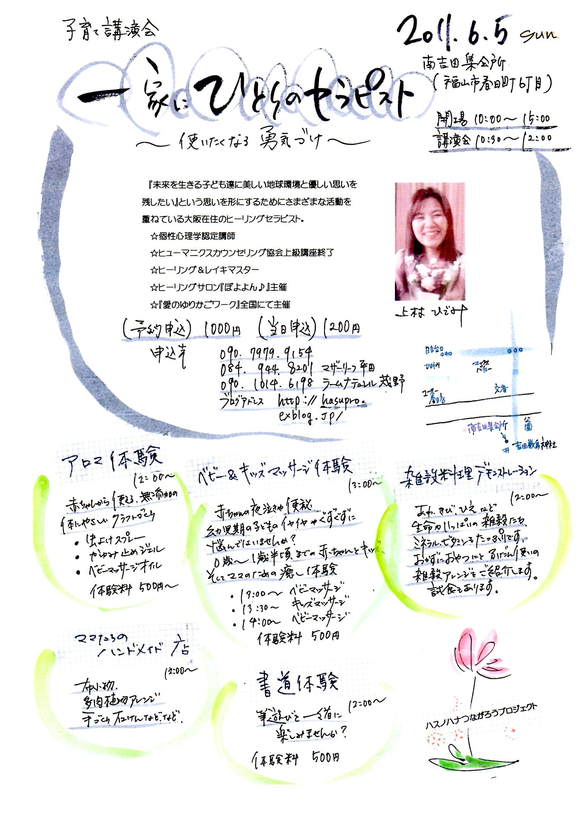 子育て講演会
2011.6.5 sun
南吉田集会所
(福山市春日町6丁目)
一家にひとりのセラピスト
~使いたくなる勇気づけ~
開場 10:00~15:00
講演会 10:30~12:00
『未来を生きる子ども達に美しい地球環境と優しい思いを
残したい』という思いを形にするためにさまざまな活動を
重ねている大阪在住のヒーリングセラピスト。
☆個性心理学認定講師
☆ヒューマニクスカウンセリング協会上級講座終了
☆ヒーリング&レイキマスター
☆ヒーリングサロン『ぽよよん♪』主催
☆『愛のゆりかごワーク』全国にて主催
上村 ひとみ
(予約申込) 1000円 (当日申込) 1200円
申込先 090.7979.9154
084.944.8201 マザーリーフ 平田
090.1014.6198 ラームナチュレル 荻野
ブログアドレス http://hasupro.
exblog.jp/
南吉田集会所
アロマ体験
12:00~
赤ちゃんから使える、
クラフトづくり
・虫よけスプレー
・かゆみ止めジェル
・ベビーマッサージオイル
体験料 500円~
ベビー&キッズマッサージ体験
13:00~
赤ちゃんの夜泣きや便秘、
幼児期の子どものイヤイヤやぐずぐずに
悩んでいませんか?
0歳~1歳半頃までの赤ちゃんとキッズ
そしてママのための癒し体験
・13:00~ ベビーマッサージ
・13:30~ キッズマッサージ
・14:00~ ベビーマッサージ
体験料 500円
雑穀料理デモンストレーション
12:00~
あわ、きび、ひえなど
生命力いっぱいの雑穀たち
ミネラル、ビタミンもたっぷりです。
おかずにおやつにと
雑穀アレンジをご紹介します。
試食もあります。
ママたちの
ハンドメイド店
13:00~
布小物、
多肉植物アレンジ
手づくり石けんなどなど。
書道体験
12:00~
筆遊びで一緒に
楽しみませんか?
体験料 500円
ハスノハナつながろうプロジェクト